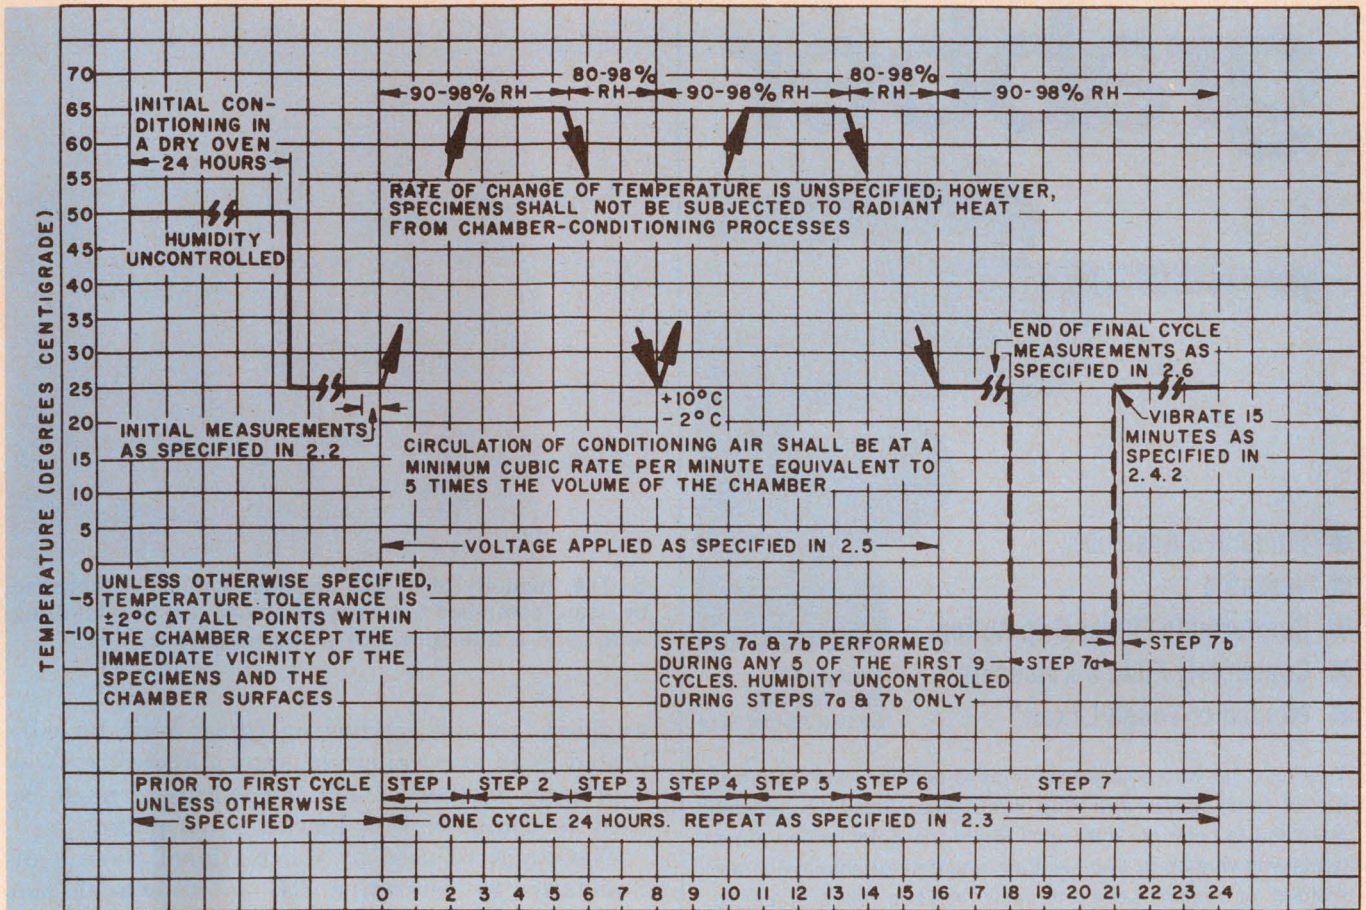 70
65
60
55
50
45
40
35
30
25
20
15
10
5
0
-5
-10
TEMPERATURE (DEGREES CENTIGRADE)
INITIAL CON-
DITIONING IN
A DRY OVEN
24 HOURS
HUMIDITY
UNCONTROLLED
90-98% RH
80-98%
RH
90-98% RH
80-98%
RH
90-98% RH
RATE OF CHANGE OF TEMPERATURE IS UNSPECIFIED; HOWEVER,
SPECIMENS SHALL NOT BE SUBJECTED TO RADIANT HEAT
FROM CHAMBER-CONDITIONING PROCESSES
END OF FINAL CYCLE
MEASUREMENTS AS
SPECIFIED IN 2.6
+10°C
-2°C
INITIAL MEASUREMENTS
AS SPECIFIED IN 2.2
CIRCULATION OF CONDITIONING AIR SHALL BE AT A
MINIMUM CUBIC RATE PER MINUTE EQUIVALENT TO
5 TIMES THE VOLUME OF THE CHAMBER
VIBRATE 15
MINUTES AS
SPECIFIED IN
2.4.2
VOLTAGE APPLIED AS SPECIFIED IN 2.5
UNLESS OTHERWISE SPECIFIED,
TEMPERATURE TOLERANCE IS
±2°C AT ALL POINTS WITHIN
THE CHAMBER EXCEPT THE
IMMEDIATE VICINITY OF THE
SPECIMENS AND THE
CHAMBER SURFACES
STEPS 7a & 7b PERFORMED
DURING ANY 5 OF THE FIRST 9
CYCLES. HUMIDITY UNCONTROLLED
DURING STEPS 7a & 7b ONLY
STEP 7a
STEP 7b
PRIOR TO FIRST CYCLE
UNLESS OTHERWISE
SPECIFIED
STEP 1 STEP 2 STEP 3 STEP 4 STEP 5 STEP 6 STEP 7
ONE CYCLE 24 HOURS. REPEAT AS SPECIFIED IN 2.3
0 1 2 3 4 5 6 7 8 9 10 11 12 13 14 15 16 17 18 19 20 21 22 23 24